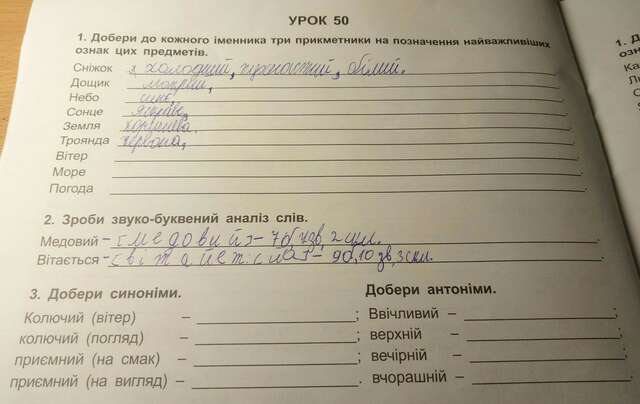 УРОК 50
1. Добери до кожного іменника три прикметники на позначення найважливіших
ознак цих предметів.
Сніжок холодний, пухнастий, білий.
Дощик мокрий,
Небо синє,
Сонце яскраве,
Земля
Троянда червона,
Вітер
Море
Погода
2. Зроби звуко-буквений аналіз слів.
Медовий - [медовий] - 7б, 7зв, 2 скл.
Вітається - 9б, 10 зв, 3 скл.
3. Добери синоніми. Добери антоніми.
Колючий (вітер) – ; Ввічливий –
колючий (погляд) – ; верхній –
приємний (на смак) – ; вечірній –
приємний (на вигляд) – . вчорашній –
1. Д
озн
Ка